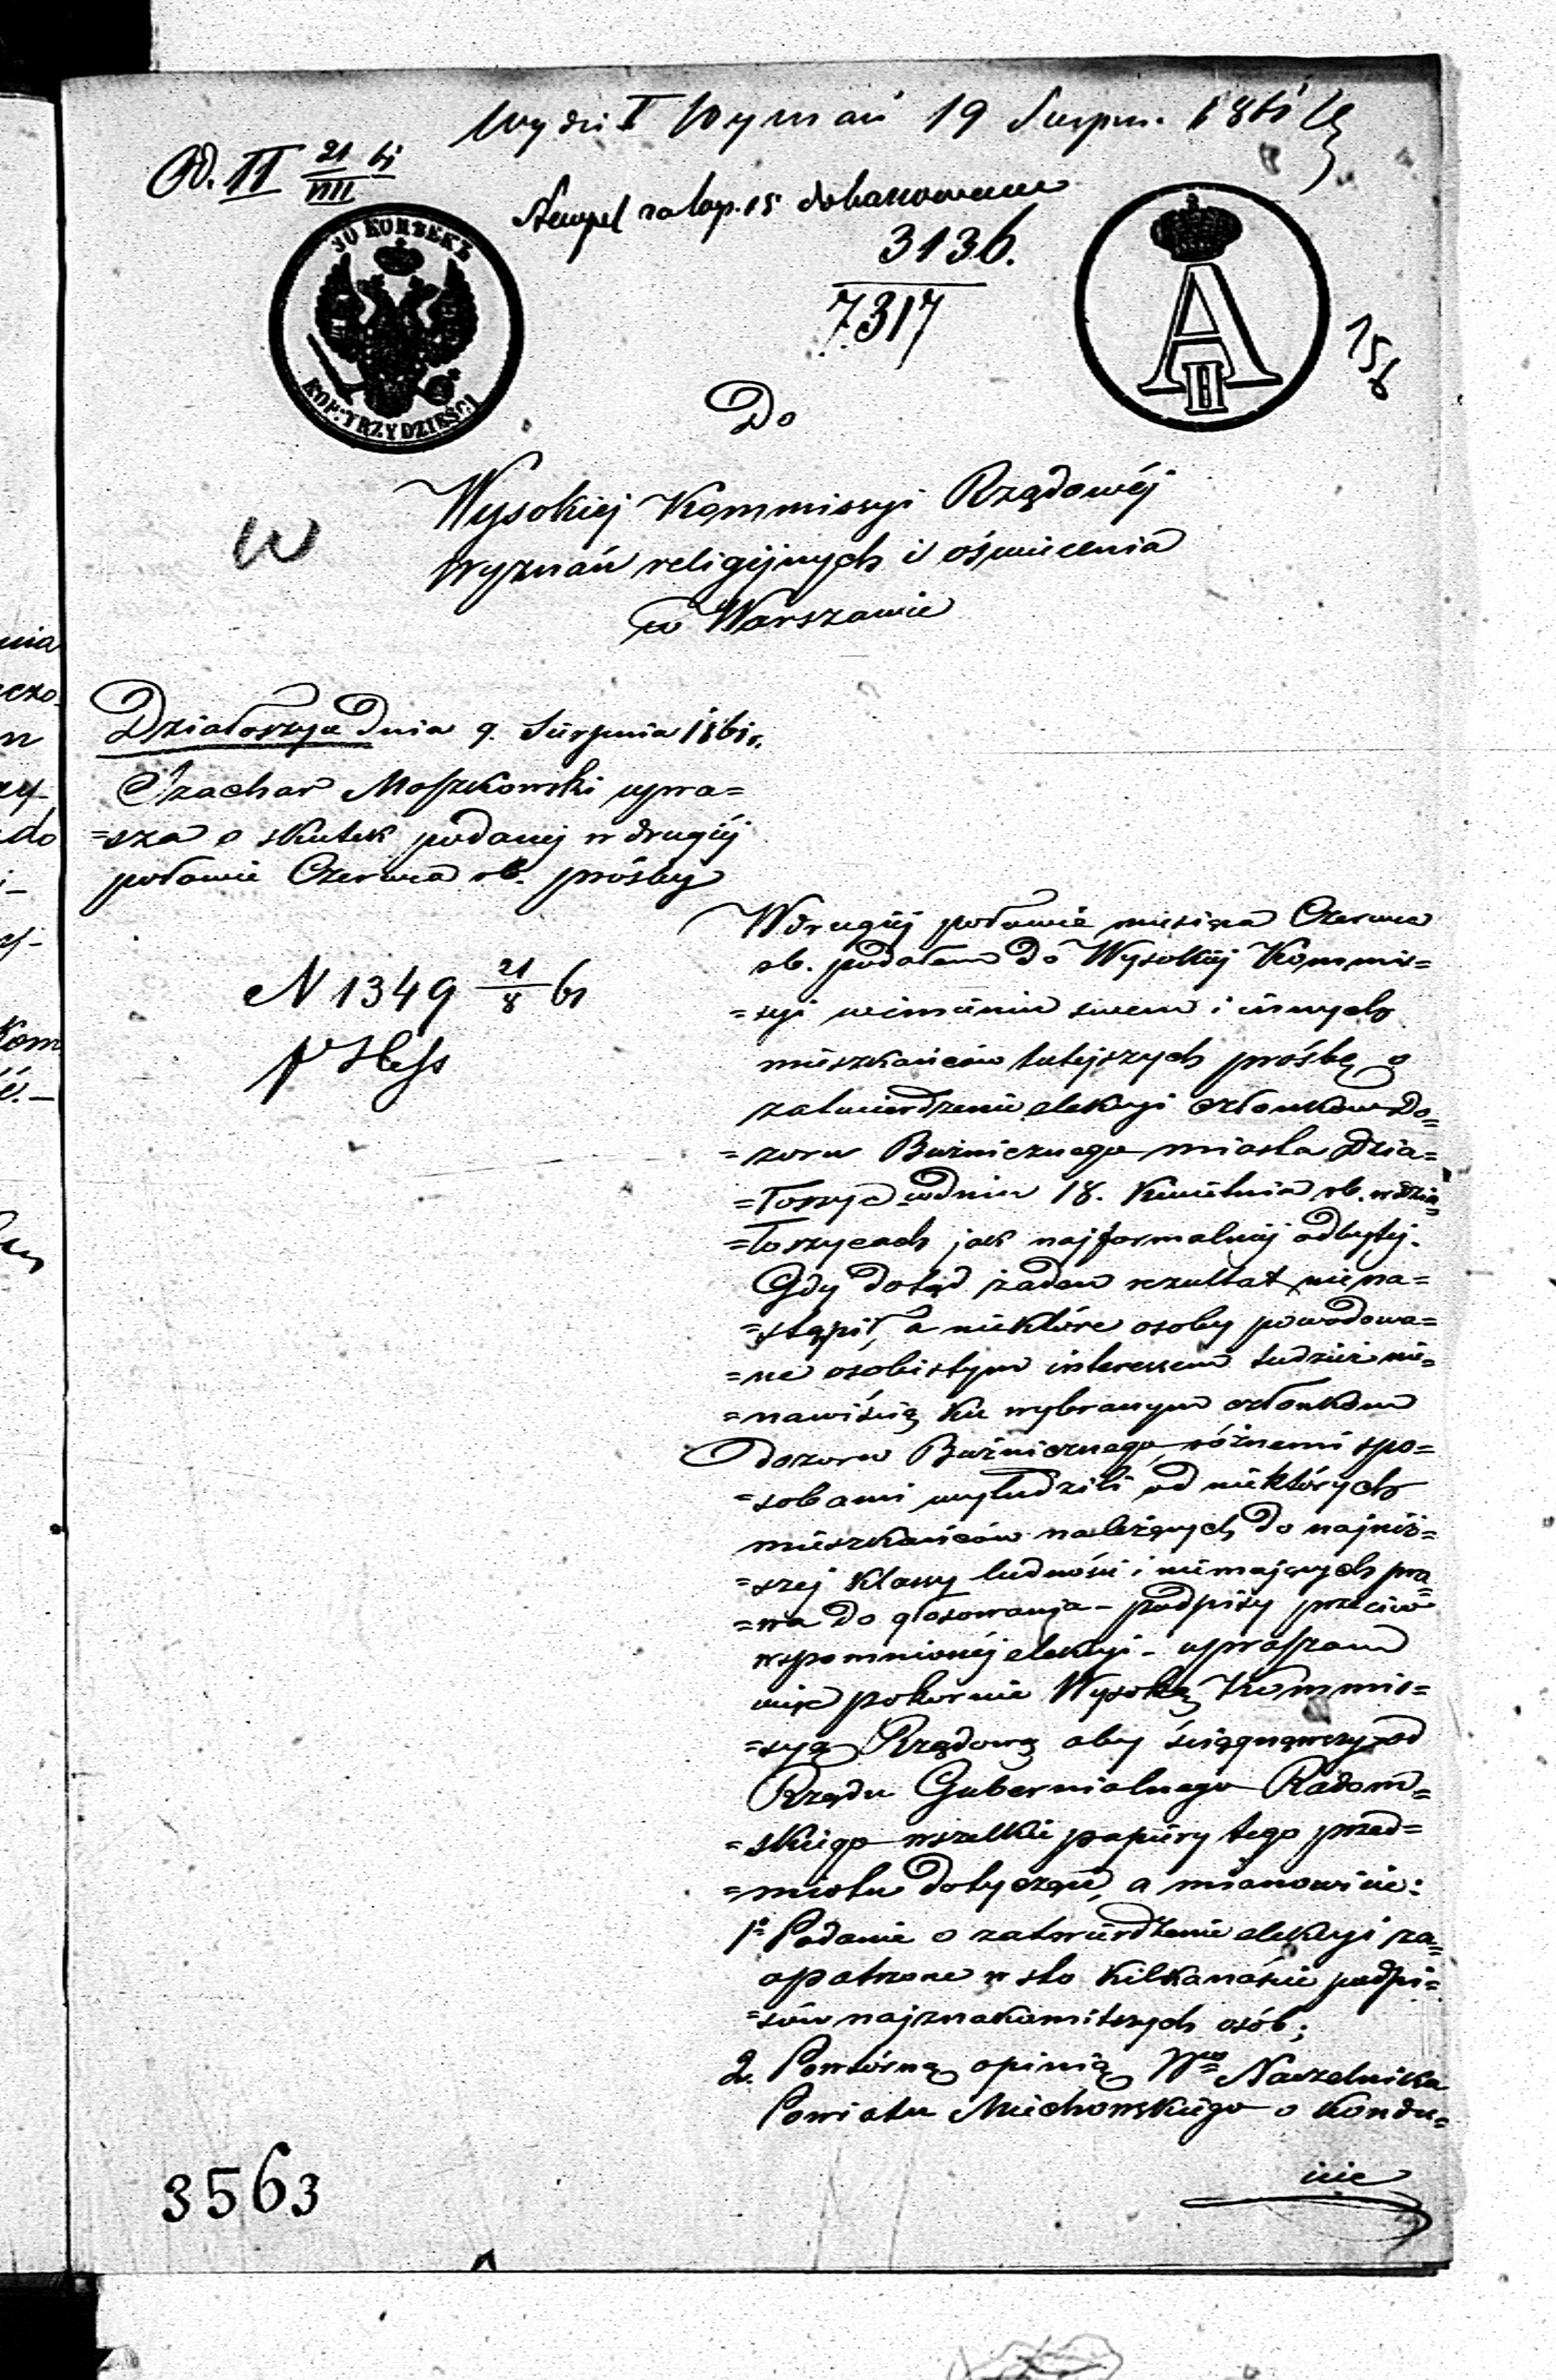 Wydz I Wyznań 19 Sierpn. 1861
Od. II 21/VIII 61
Stempel za kop. 15 dokassowano
3136.
7317
30 KOPEEKЪ
KOP: TRZYDZIEŚCI
A II
156
Do
Wysokiej Kommissyi Rządowéj
Wyznań religijnych i oświecenia
w Warszawie
W
Działoszyce Dnia 9. Sierpnia 1861 r.
Izachar Moszkowski upra=
=sza o skutek podanej w drugiéj
połowie Czerwca rb. prośby
N 1349 21/8 61
W drugiéj połowie miesiąca Czerwca
rb. podałem do Wysokiéj Kommis=
=syi w imieniu swem i innych
mieszkańców tutejszych prośbę o
zatwierdzenie elekcyi członków Do=
=zoru Bużnicznego miasta Dzia=
=łoszyc w dniu 18. Kwietnia rb. w Dzia=
=łoszycach jak najformalniéj odbytéj.
Gdy dotąd żaden rezultat nie na=
=stąpił, a niektóre osoby powodowa=
=ne osobistym interessem tudzież nie=
=nawiścią ku wybranym członkom
Dozoru Bużnicznego, różnemi spo=
=sobami wyłudzili od niektórych
mieszkańców należących do najniż=
=szej klassy ludności i niemających pra=
=wa do głosowania – podpisy przeciw
wspomnionéj elekcyi – upraszam
więc pokornie Wysoką Kommis=
=syą Rządową aby ściągnąwszy od
Rządu Gubernialnego Radom=
=skiego wszelkie papiery tego przed=
=miotu dotyczące, a mianowicie:
1º Podanie o zatwierdzenie elekcyi za=
opatrzone w sto kilkanaście podpi=
=sów najznakomitszych osób;
2. Powtórną opinią Wgo Naczelnika
Powiatu Miechowskiego o kondu=
icie
3563